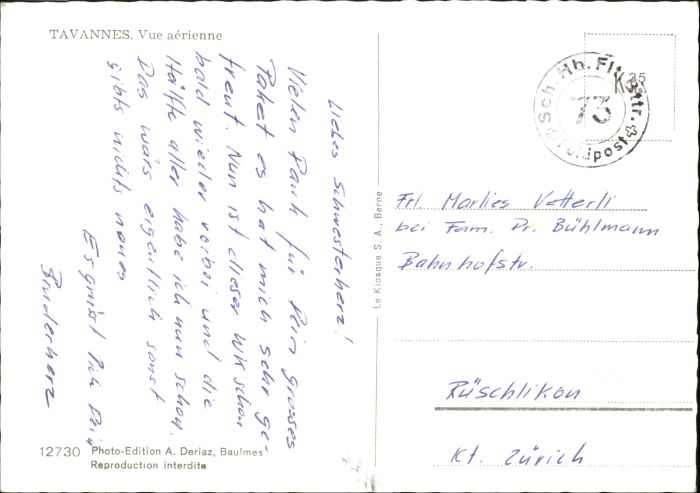 TAVANNES. Vue aérienne
Liebes Schwesterherz!
Vielen Dank für Dein grosses
Paket es hat mich sehr ge-
freut. Nun ist dieser WK schon
bald wieder vorbei und die
Hälfte aller habe ich nun schon.
Das wärs eigentlich sonst
gibts nichts neues
Es grüsst Dich Dein
Bruderherz
12730 Photo-Edition A. Deriaz, Baulmes
Reproduction interdite
Le Kiosque S. A., Berne
Sch. Hb. Flt. Bttr.
73
Feldpost
K 35
Frl. Marlies Vetterli
bei Fam. Dr. Bühlmann
Bahnhofstr.
Rüschlikon
Kt. Zürich